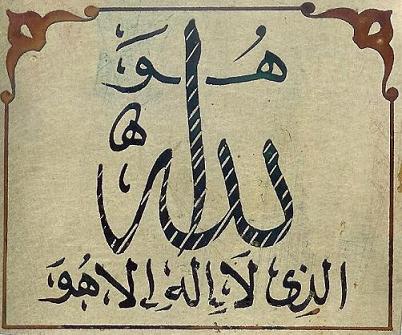 هُوَ
الله
الذى لَا اِلٰهَ اِلا هُوَ